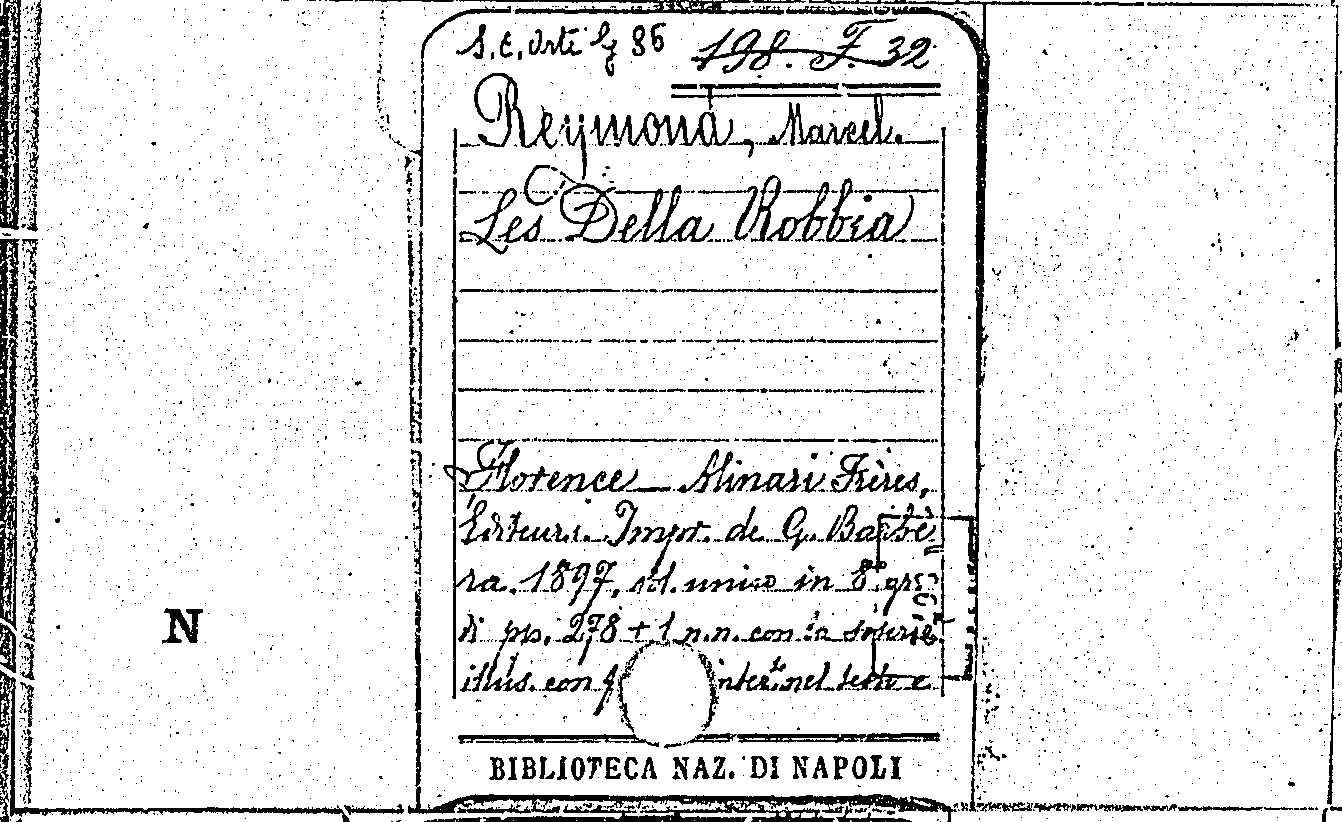 S.C. Arti Lg 86 198. F. 32
Reymond, Marcel.
Les Della Robbia
Florence — Alinari Frères,
Editeurs. Impr. de G. Barbè
ra. 1897, vol. unico in 8° gr.
di pp. 278 + 1 n.n. con la
illus. con nel testo e
N
BIBLIOTECA NAZ. DI NAPOLI